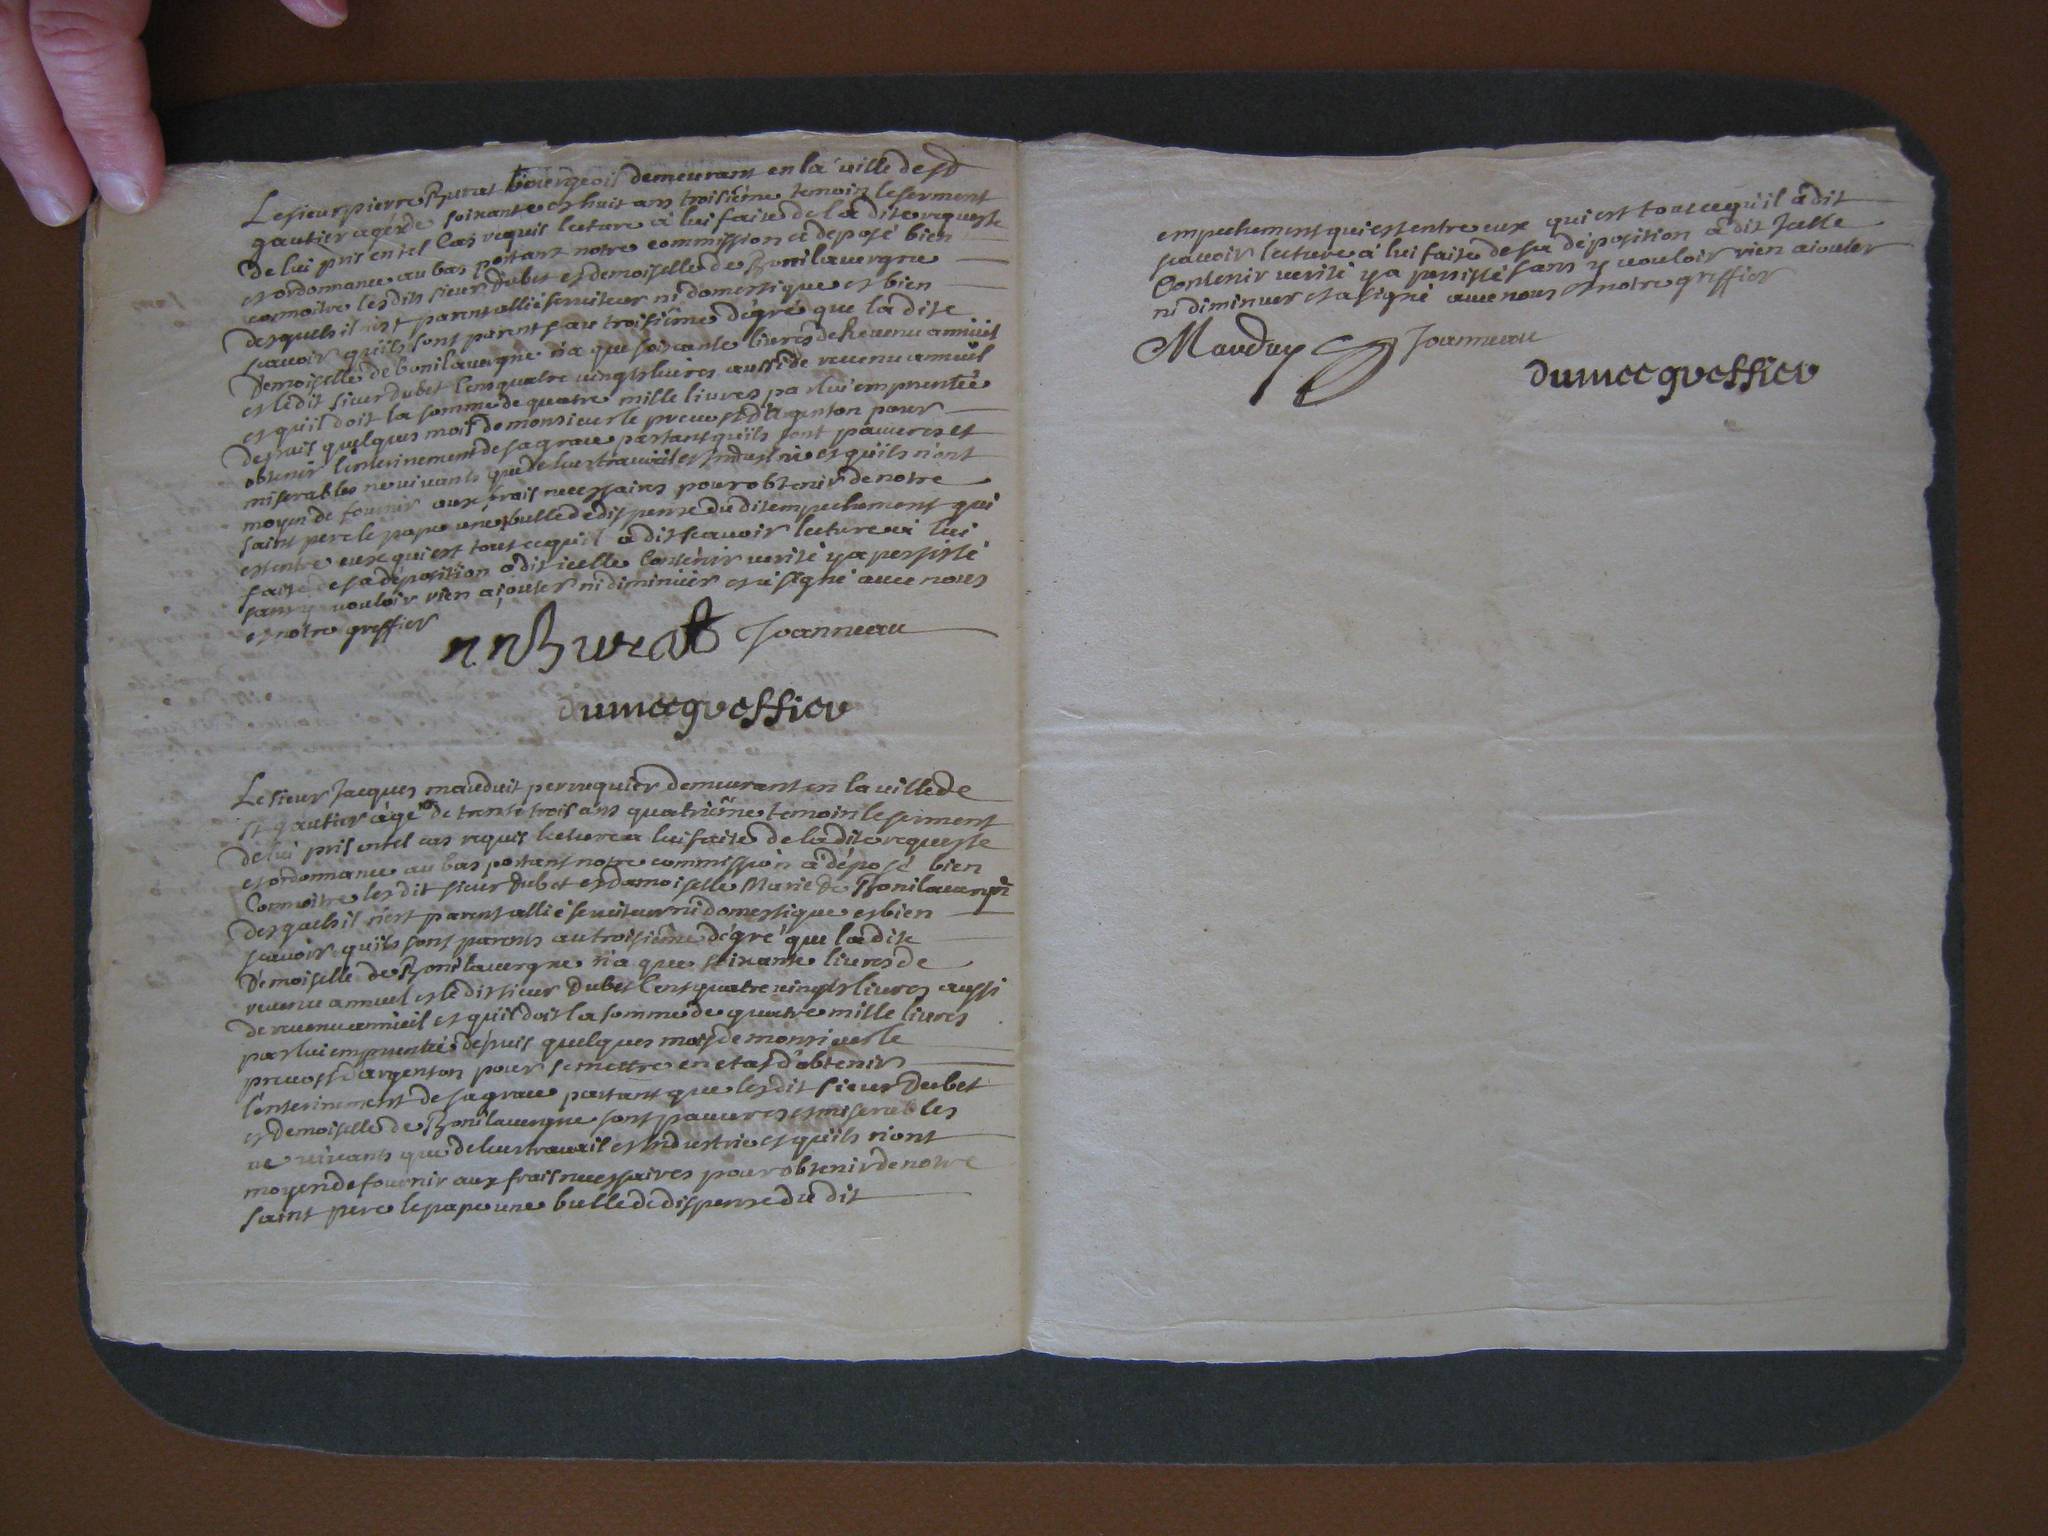 Le sieur pierre Burat bourgeois demeurant en la ville de st
gautier agé de soixante et huit ans troisiéme temoin le serment
de lui pris en tel cas requis lecture à lui faite de la dite requeste
et ordonnance au bas portant notre commission a deposé bien
connoitre les dits sieur Dubet et demoiselle de Bonilavergne
desquels il n'est parent allié serviteur ni domestique et bien
scavoir qu'ils sont parents au troisiéme dégré que la dite
Demoiselle de bonilavergne n'a que soixante livres de Revenu annuel
et le dit sieur Dubet cens quatre vingts livres aussi de revenu annuel
et qu'il doit la somme de quatre mille livres par lui empruntée
depuis quelques mois de monsieur le prevost d'Argenton pour
obtenir l'enterinement de sa grace partant qu'ils sont pauvres et
miserables ne vivants que de leur travail et Industrie et qu'ils n'ont
moyen de fournir aux frais necessaires pour obtenir de notre
saint pere le pape une bulle de dispense du dit empechement qui
est entre eux qui est tout ce qu'il a dit scavoir lecture à lui
faite de sa déposition a dit icelle Contenir verité y a persisté
sans y vouloir rien ajouter ni diminüer et a signé avec nous
et notre greffier
Burat Joanneau
dumee greffier
Le sieur Jacques mauduit perruquier demeurant en la ville de
st gautier agé de trante trois ans quatriéme temoin le serment
de lui pris en tel cas requis lecture a lui faite de la dite requeste
et ordonnance au bas portant notre commission a déposé bien
Connoitre les dit sieur Dubet et damoiselle Marie de Bonilavergne
desquels il n'est parent allié serviteur ni domestique et bien
scavoir qu'ils sont parents au troisiéme dégré que la dite
Demoiselle de Bonilavergne n'a que soixante livres de
revenu annuel et le dit sieur Dubet Cens quatre vingts livres aussi
de revenu annüel et qu'il doit la somme de quatre mille livres
par lui empruntée depuis quelques mois de monsieur le
prevost d'argenton pour se mettre en etat d'obtenir
l'enterinement de sa grace partant que les dit sieur Dubet
et Demoiselle de Bonilavergne sont pauvres et miserables
ne vivants que de leur travail et Industrie et qu'ils n'ont
moyen de fournir aux frais necessaires pour obtenir de notre
saint pere le pape une bulle de dispense du dit
empechement qui est entre eux qui est tout ce qu'il a dit
scavoir lecture à lui faite de sa déposition a dit Icelle
Contenir verité y a persisté sans y vouloir rien ajouter
ni diminuer et a signé avec nous et notre greffier
Mauduy Joanneau
dumee greffier